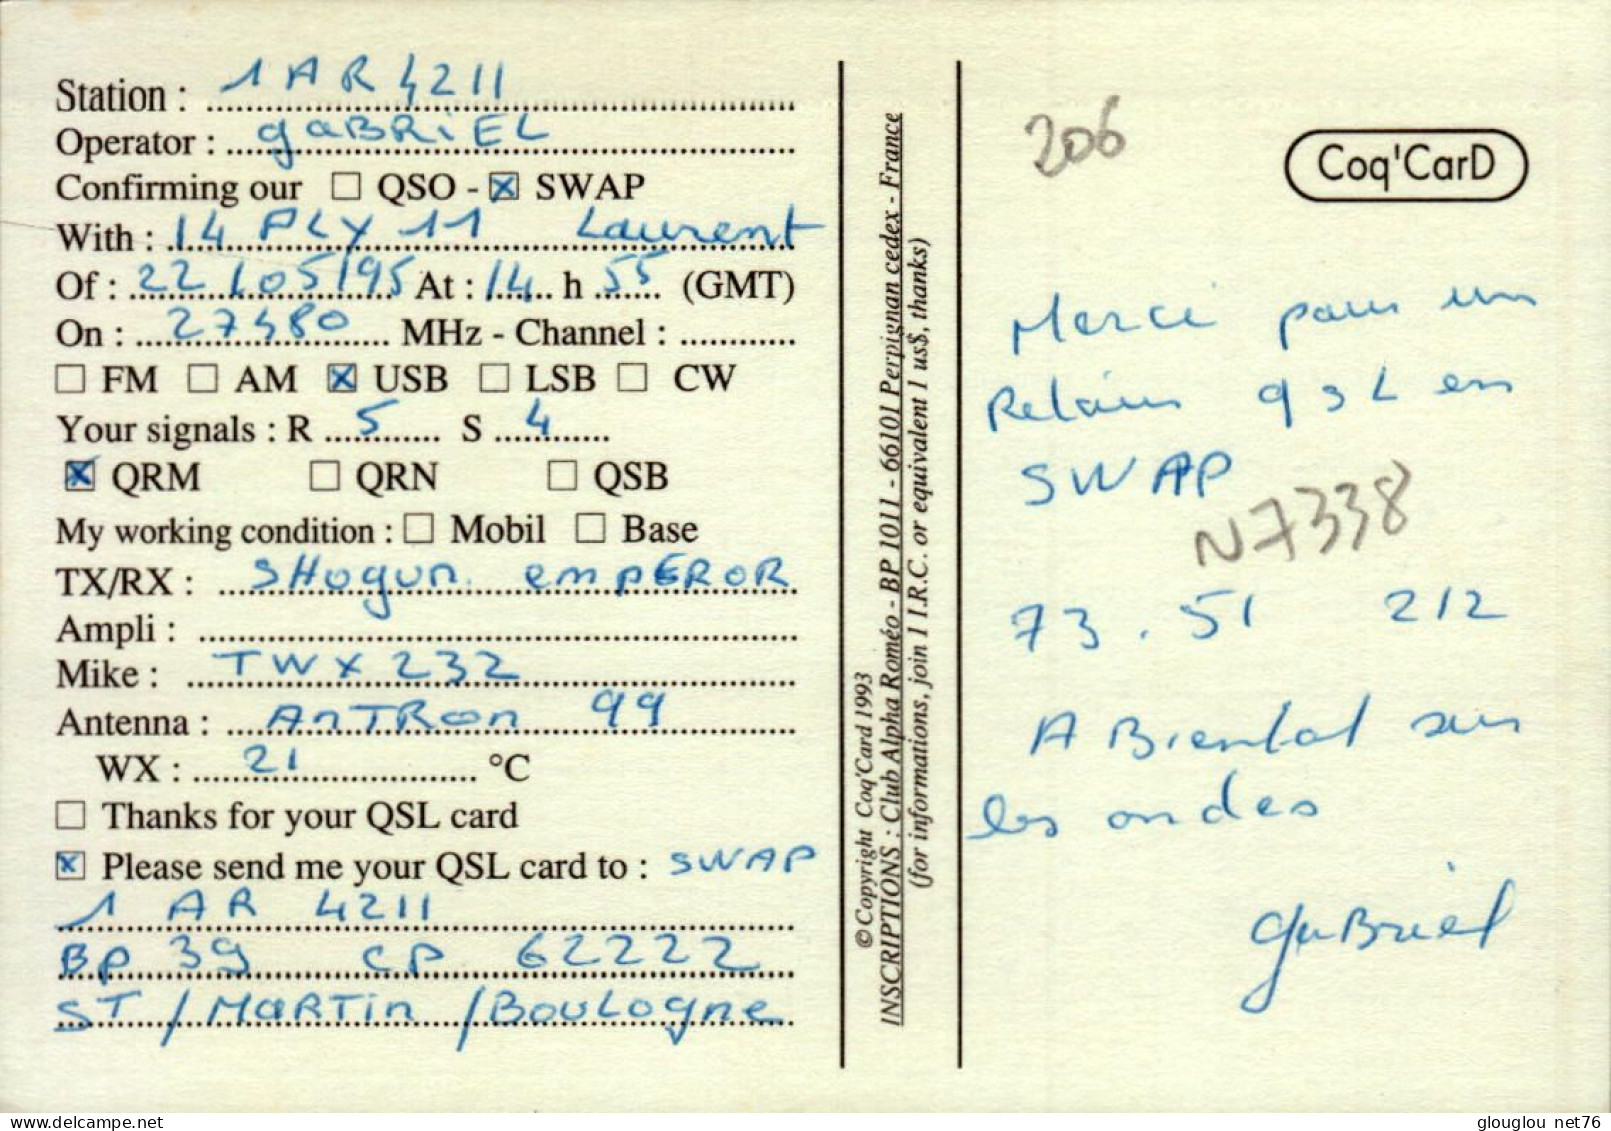 Station : 1 AR 4211
Operator : gaBRiEL
Confirming our ☐ QSO - ☒ SWAP
With : 14 PLY 11 Laurent
Of : 22/05/95 At : 14 h 55 (GMT)
On : 27480 MHz - Channel :
☐ FM ☐ AM ☒ USB ☐ LSB ☐ CW
Your signals : R 5 S 4
☒ QRM ☐ QRN ☐ QSB
My working condition : ☐ Mobil ☐ Base
TX/RX : SHogun emPEROR
Ampli :
Mike : TWX 232
Antenna : AnTRon 99
WX : 21 °C
☐ Thanks for your QSL card
☒ Please send me your QSL card to : SWAP
1 AR 4211
BP 39 CP 62222
ST / MaRTin / BOULOgne
© Copyright Coq'Card 1993
INSCRIPTIONS : Club Alpha Roméo - BP 1011 - 66101 Perpignan cedex - France
(for informations, join 1 I.R.C. or equivalent 1 us$, thanks)
206
Coq'CarD
Merci pour un
Retour QSL en
SWAP
N7338
73 . 51 212
A Bientot sur
les ondes
gaBriel
glouglou net76